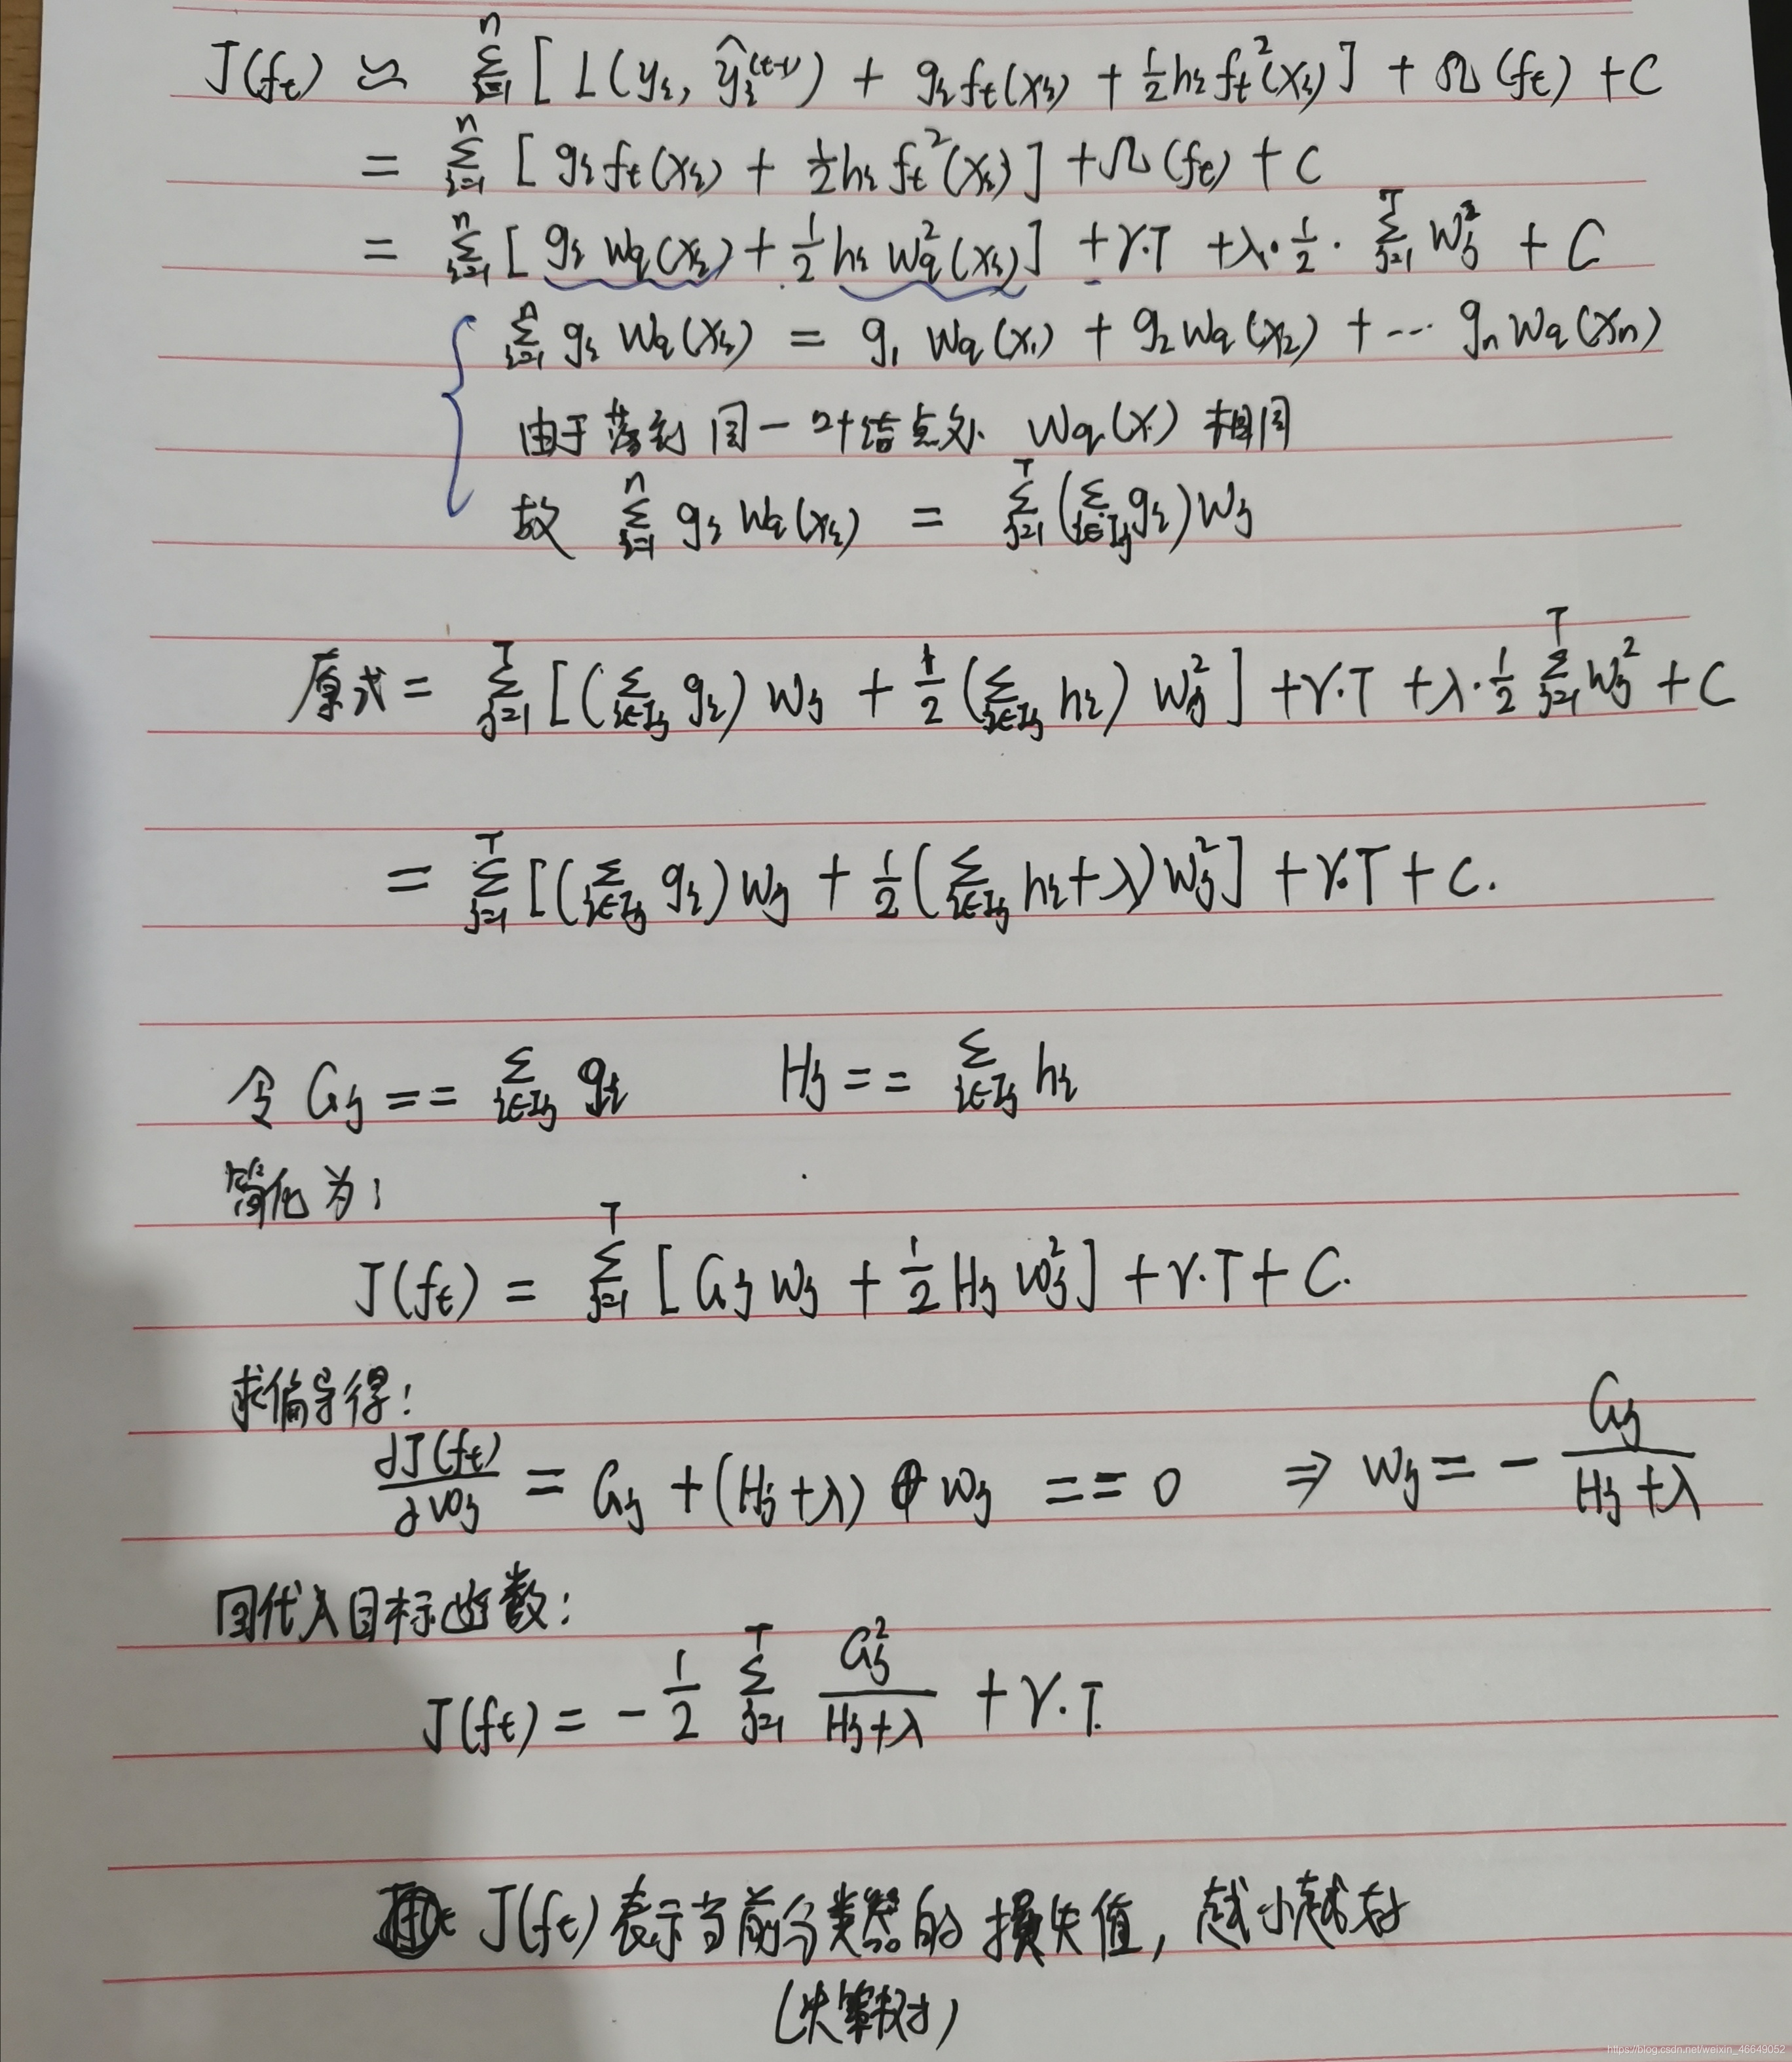 J(fₜ) ≈ Σᵢ₌₁ⁿ [ L(yᵢ, ŷᵢ⁽ᵗ⁻¹⁾) + gᵢfₜ(xᵢ) + ½hᵢfₜ²(xᵢ) ] + Ω(fₜ) + C
= Σᵢ₌₁ⁿ [ gᵢfₜ(xᵢ) + ½hᵢfₜ²(xᵢ) ] + Ω(fₜ) + C
= Σᵢ₌₁ⁿ [ gᵢ w_q(xᵢ) + ½ hᵢ w_q²(xᵢ) ] + γ·T + λ·½·Σⱼ₌₁ᵀ wⱼ² + C
Σᵢ₌₁ⁿ gᵢ w_q(xᵢ) = g₁ w_q(x₁) + g₂ w_q(x₂) + ⋯ gₙ w_q(xₙ)
由于落到同一个结点处 w_q(x) 相同
故 Σᵢ₌₁ⁿ gᵢ w_q(xᵢ) = Σⱼ₌₁ᵀ (Σ_{i∈Iⱼ} gᵢ) wⱼ
原式 = Σⱼ₌₁ᵀ [ (Σ_{i∈Iⱼ} gᵢ) wⱼ + ½ (Σ_{i∈Iⱼ} hᵢ) wⱼ² ] + γ·T + λ·½ Σⱼ₌₁ᵀ wⱼ² + C
= Σⱼ₌₁ᵀ [ (Σ_{i∈Iⱼ} gᵢ) wⱼ + ½ (Σ_{i∈Iⱼ} hᵢ + λ) wⱼ² ] + γ·T + C.
令 Gⱼ == Σ_{i∈Iⱼ} gᵢ Hⱼ == Σ_{i∈Iⱼ} hᵢ
简化为:
J(fₜ) = Σⱼ₌₁ᵀ [ Gⱼ wⱼ + ½ Hⱼ wⱼ² ] + γ·T + C.
求偏导得:
∂J(fₜ)/∂wⱼ = Gⱼ + (Hⱼ + λ) wⱼ == 0 ⇒ wⱼ = - Gⱼ/(Hⱼ + λ)
回代入目标函数:
J(fₜ) = - ½ Σⱼ₌₁ᵀ Gⱼ²/(Hⱼ + λ) + γ·T.
J(fₜ) 表示当前分类器的损失值, 越小越好
(决策树)
https://blog.csdn.net/weixin_46649052